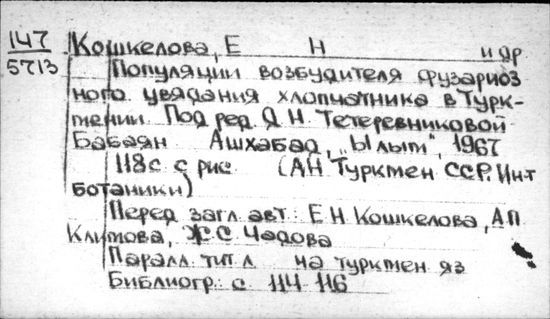 147
5713
Кошкелова, Е Н и др
Популяции возбудителя фузариоз
ного увядания хлопчатника в Турк-
мении. Под ред. Д Н. Тетеревниковой
Бабаян Ашхабад, „Ылым", 1967
118с с рис (АН Туркмен ССР. Ин-т
ботаники)
Перед загл авт: Е Н Кошкелова, А П
Климова, Ж С Чадова
Паралл. тит л на туркмен яз
Библиогр: с 114 116